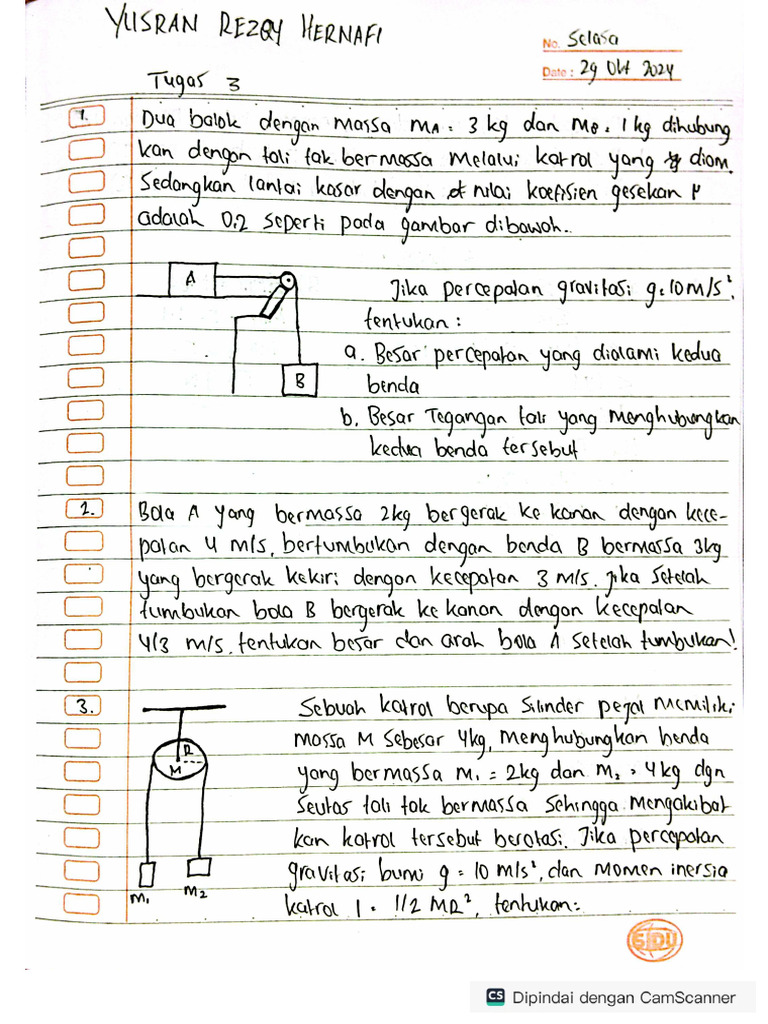 YUSRAN REZQY HERNAFI
No. Selasa
Date : 29 Okt 2024
Tugas 3
1. Dua balok dengan massa mA = 3 kg dan mB = 1 kg dihubung
kan dengan tali tak bermassa melalui katrol yang diam.
Sedangkan lantai kasar dengan nilai koefisien gesekan μ
adalah 0,2 seperti pada gambar dibawah.
A
B
Jika percepatan gravitasi g = 10 m/s²,
tentukan :
a. Besar percepatan yang dialami kedua
benda
b. Besar Tegangan tali yang menghubungkan
kedua benda tersebut
2. Bola A yang bermassa 2kg bergerak ke kanan dengan kece-
patan 4 m/s, bertumbukan dengan benda B bermassa 3kg
yang bergerak kekiri dengan kecepatan 3 m/s. Jika Setelah
tumbukan bola B bergerak ke kanan dengan kecepatan
4/3 m/s, tentukan besar dan arah bola A setelah tumbukan!
3. Sebuah katrol berupa Silinder pejal memiliki
massa M Sebesar 4kg, menghubungkan benda
yang bermassa m₁ = 2kg dan m₂ = 4kg dgn
Seutas tali tak bermassa Sehingga Mengakibat
kan katrol tersebut berotasi. Jika percepatan
gravitasi bumi g = 10 m/s², dan momen inersia
katrol I = 1/2 MR², tentukan:
R
M
m₁
m₂
SIDU
CS Dipindai dengan CamScanner